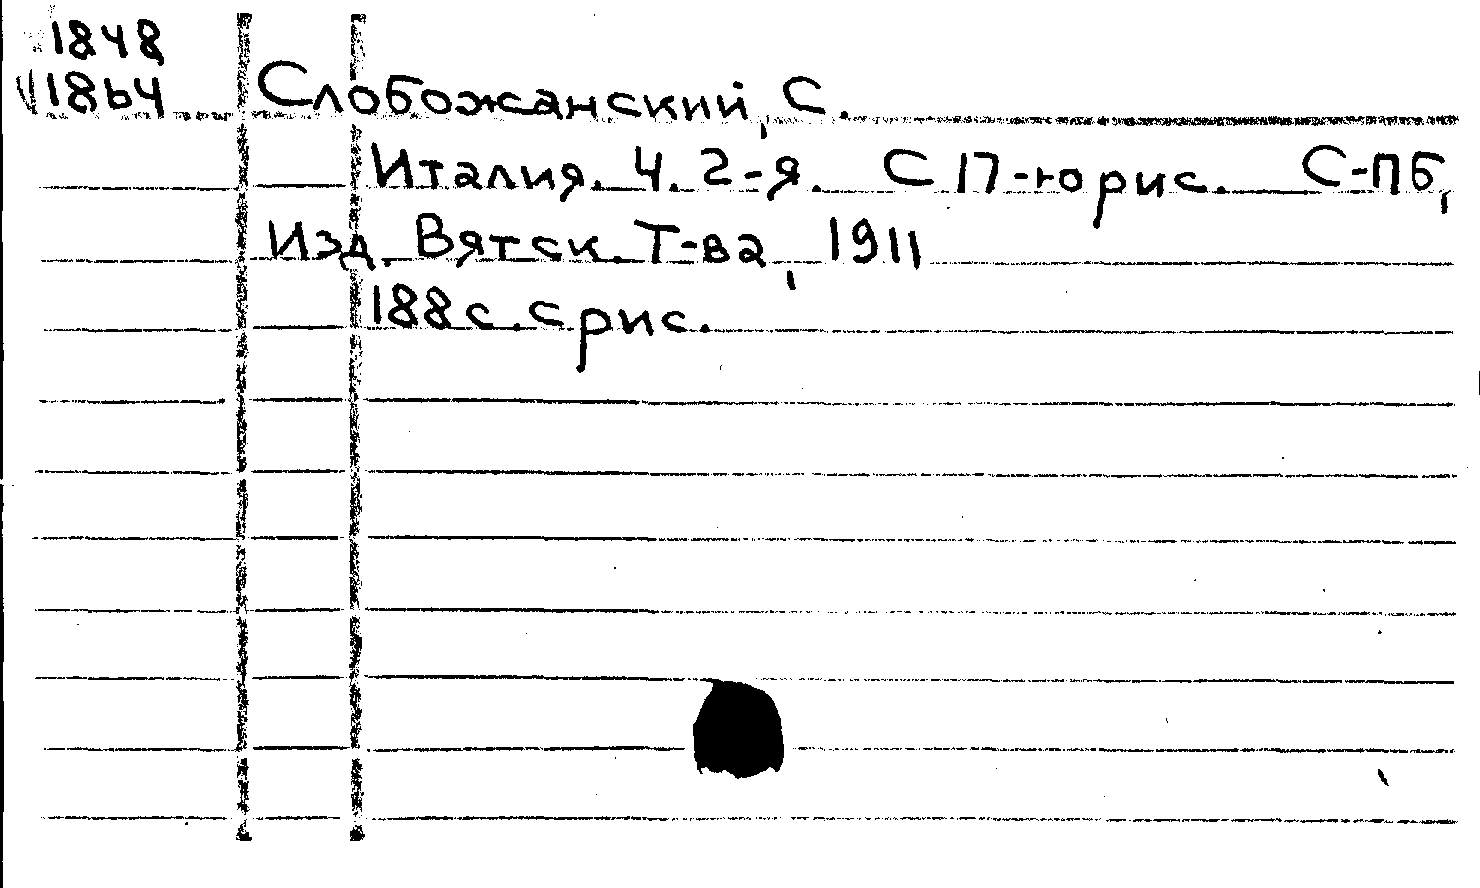 1848
1864 Слобожанский, С.
Италия. Ч. 2-я. С 17-ю рис. С-ПБ,
Изд. Вятск. Т-ва, 1911
188 с. с рис.